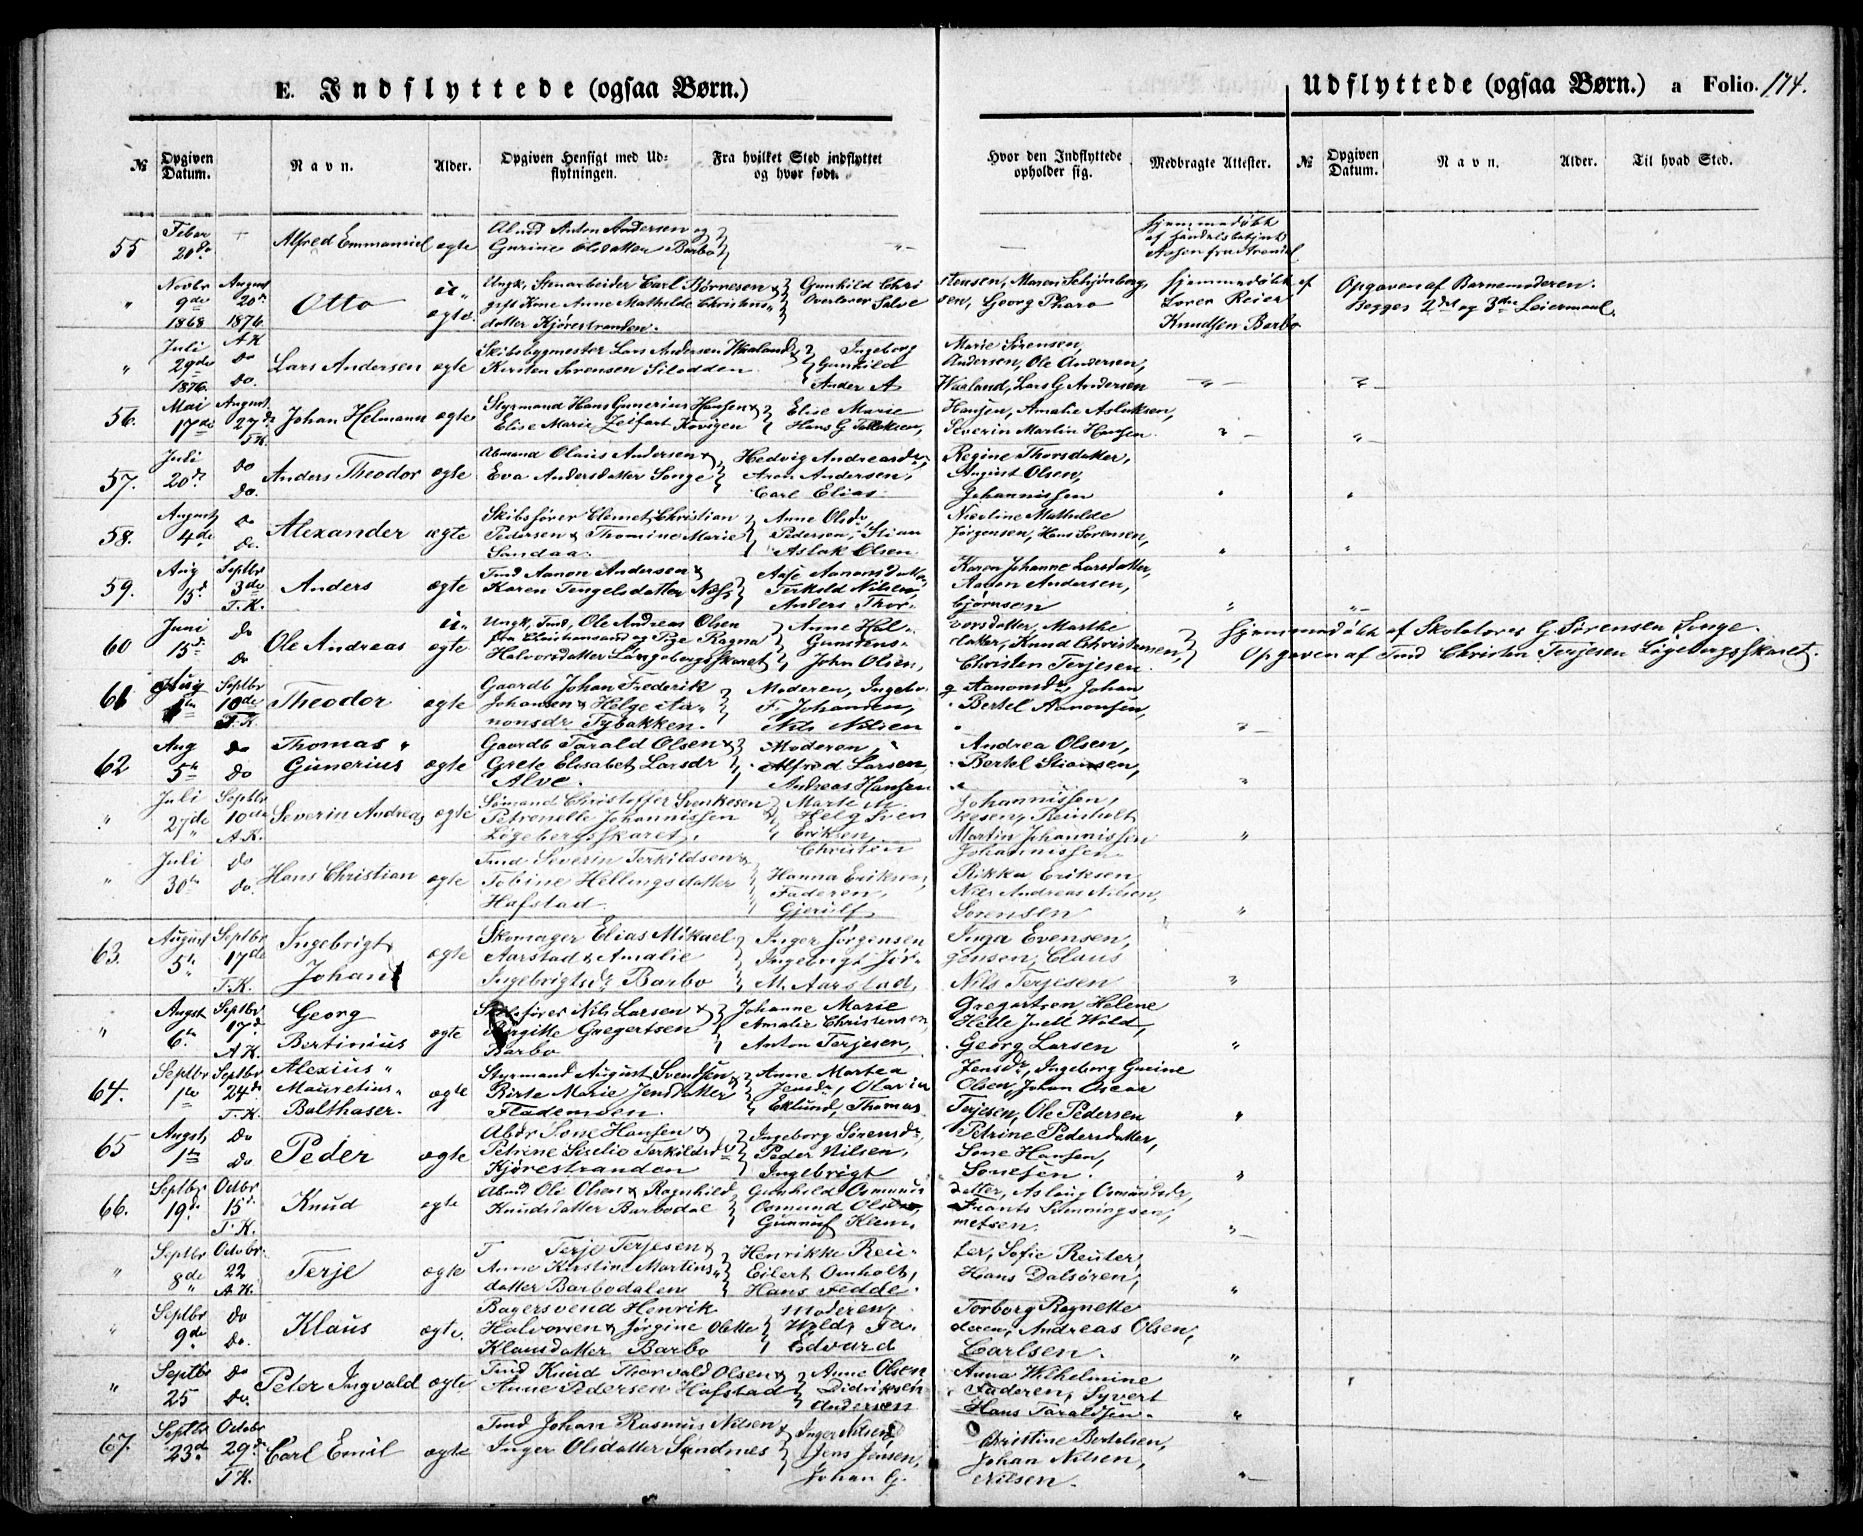 E. Indflyttede (ogsaa Børn.)
Udflyttede (ogsaa Børn.) a Folio. 174.
№ Opgiven Datum. Navn. Alder. Opgiven Hensigt med Udflytningen. Fra hvilket Sted indflyttet og hvor født. Hvor den Indflyttede opholder sig. Medbragte Attester. № Opgiven Datum. Navn. Alder. Til hvad Sted.
55 20de Alfred Emmanuel ægte Anton Andersen og
Gurine Olsdatter Barbo
hjemmedøbt
af
fra Arendal
Novbr 9de 1868 August 20de 1876 A.K. Otto u- ægte Ungk. Stenarbeider Carl Børresen &
gift Kone Anne Mathilde Christens-
datter Kjørestranden.
Gunhild Chri stensen, Maren Schjønberg,
Overlærer Salve sen, Georg Tharo
hjemmedøbt af
Lærer Reier
Knudsen Barbo
Opgaven af Barnemoderen.
Begges 2det og 3die Leiermaal.
Juli 29de 1876 Do Do. Lars Andersen ægte Skibsbygmester Lars Andersen Waaland &
Kirsten Sørensen Silodden
Ingeborg Marie Sørensen,
Gunhild Andersen, Ole Andersen,
Ander A Waaland, Lars G Andersen
56. Mai 17de August 27de T.K. Johan Helmann ægte Styrmand Hans Gunerius Hansen &
Elise Marie Kovigen
Elise Marie Hansen, Amalie Aslaksen,
Hans G Severin Martin Hansen
57. Juli 20de Do Do. Anders Theodor ægte Olaus Andersen &
Eva Andersdatter Songe
Hedvig Andreasdr, Regine Thorsdatter,
Aron Andersen, August Olsen,
Carl Elias Johannissen
58. August 4de Do Do. Alexander ægte Skibsfører Clemet Christian
Pedersen & Thomine Marie
Sandaa.
Anne Olsdr, Nicoline Mathilde
Pedersen, Stian Jørgensen, Hans Sørensen,
Aslak Olsen
59. Aug 15de Septbr 3de T.K. Anders ægte Tmd Aanon Andersen &
Karen Tengelsdatter Næs
Aase Aanonsdatter, Karen Johanne Larsdatter,
Terkeld Nilsen, Aanon Andersen,
Anders Thor- bjørnsen
60 Juni 15de Do Do Ole Andreas u- ægte Ungk, Tmd, Ole Andreas Olsen
fra Christiansand og Pige Ragna
Halvorsdatter Langebergsskaret
Anne Hal- vorsdatter, Marthe
Gunstens- datter, Knud Christensen,
John Olsen, Christen Terjesen.
Hjemmedøbt af Skolelærer G Sørensen Songe.
Opgaven af Tmd Christen Terjesen Løgebergsskaret.
61 Aug 1ste Septbr 10de T.K. Theodor ægte Gaardb Johan Frederik
Johansen & Helge Aa-
nonsdr Tybakken.
Moderen, Ingebo- g Aanonsdr, Johan
F. Johansen, Bertel Aanonsen,
Nils Nilsen
62 Aug 5te Do Do Thomas Gunerius ægte Gaardb Tarald Olsen &
Grete Elisabet Larsdr
Alve.
Moderen, Andrea Olsen,
Alfred Larsen, Bertel Stiansen,
Andreas Hansen
Juli 27de Septbr 10de A.K. Severin Andreas ægte Sømand Christoffer Svenkesen
Petronelle Johannissen
Løgebergsskaret.
Marte M. Johannissen,
Helg Sven kesen, Reinholt
Eriksen, Martin Johannissen
Christen Johannissen
Juli 30te Do Do. Hans Christian ægte Tmd Severin Terkildsen &
Tobine Hellingsdatter
Hafstad.
Hanna Eriksen, Rikka Eriksen,
Faderen, Nils Andreas Nilsen,
Gjerulf Sørensen
63. August 5te Septbr 17de T.K. Ingebrigt Johan ægte Skomager Elias Mikael
Aarstad & Amalie
Ingebrigtsdr Barbo
Inger Jørgensen Inga Evensen,
Ingebrigt Jør- gensen, Claus
M. Aarstad, Nils Terjesen
Augst 6te Septbr 17de A.K. Georg Bertinius ægte Skibsfører Nils Larsen &
Birgitte Gregertsen
Barbo
Johanne Marie Gregertsen, Helene
Amalie Christensen, Helle Juell Wold,
Anton Terjesen, Georg Larsen
64. Septbr 1ste Septbr 24de T.K. Alexius Mauretius Balthaser. ægte Styrmand August Svendsen &
Birte Marie Jensdatter
Flademoen.
Anne Martea Jensdr, Ingeborg Gurine
Jensdr, Olavia Olsen, Johan Oscar
Eklund, Thomas Terjesen, Ole Pedersen
65 Augst 1ste Do Do Peder ægte Søne Hansen &
Petrine Siselie Terkildsdr
Kjørestranden
Ingeborg Sørensdr, Petrine Pedersdatter,
Peder Nilsen, Søne Hansen,
Ingebrigt Sønesen.
66. Septbr 19de Octbr 15de T.K. Knud ægte Ole Olsen & Ragnhild
Knudsdatter Barbodal
Gunhild Osmunds datter, Aslaug Osmundsdr,
Osmund Olsen, Frants Svenningsen,
Gunnuf Klem- metsen.
Septbr 8de Octobr 22 A.K. Terje ægte T Terje Terjesen &
Anne Kirstine Martins-
datter Barbodalen
Henrikke Reu- ter, Sofie Reuter,
Eilert Omholt, Hans Dalsøren,
Hans Fedde
Septbr 9de Do Do. Klaus ægte. Bagersvend Henrik
Halvorsen & Jørgine Olette
Klausdatter Barbo
Moderen, Torborg Ragnette
Wold, Fa- deren, Andreas Olsen,
Edvard Carlsen.
Septbr 25 Do Do. Peter Ingvald ægte Tmd Knud Thorvald Olsen &
Anne Pedersen Hafstad
Anne Olsen Anna Wilhelmine
Didriksen Faderen, Syvert
Andersen Hans Taraldsen.
67. Septbr 23de Octobr 29de T.K. Carl Emil ægte Tmd Johan Rasmus Nilsen &
Inger Olsdatter Sandnes
Inger Nilsen, Christine Bertelsen,
Jens Jensen, Johan Nilsen,
Johan G. Nilsen.